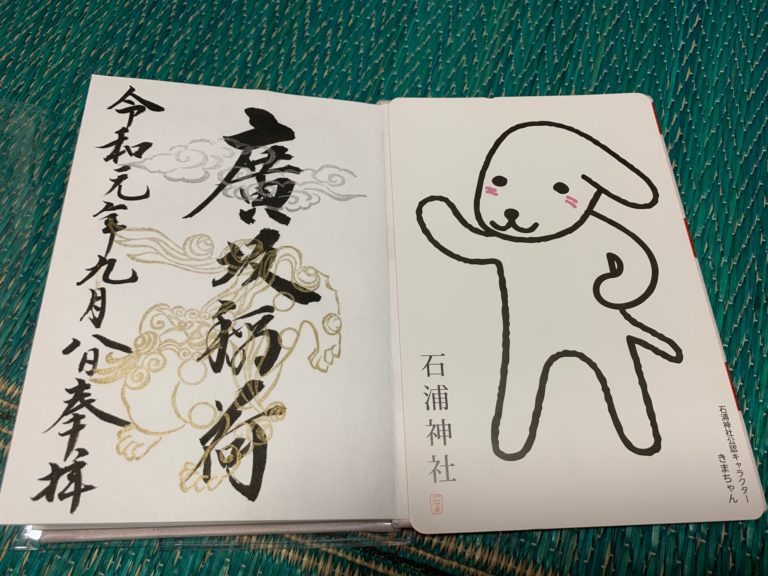 石浦神社公認キャラクター
きまちゃん
石浦神社
廣坂稲荷
令和元年九月八日奉拝